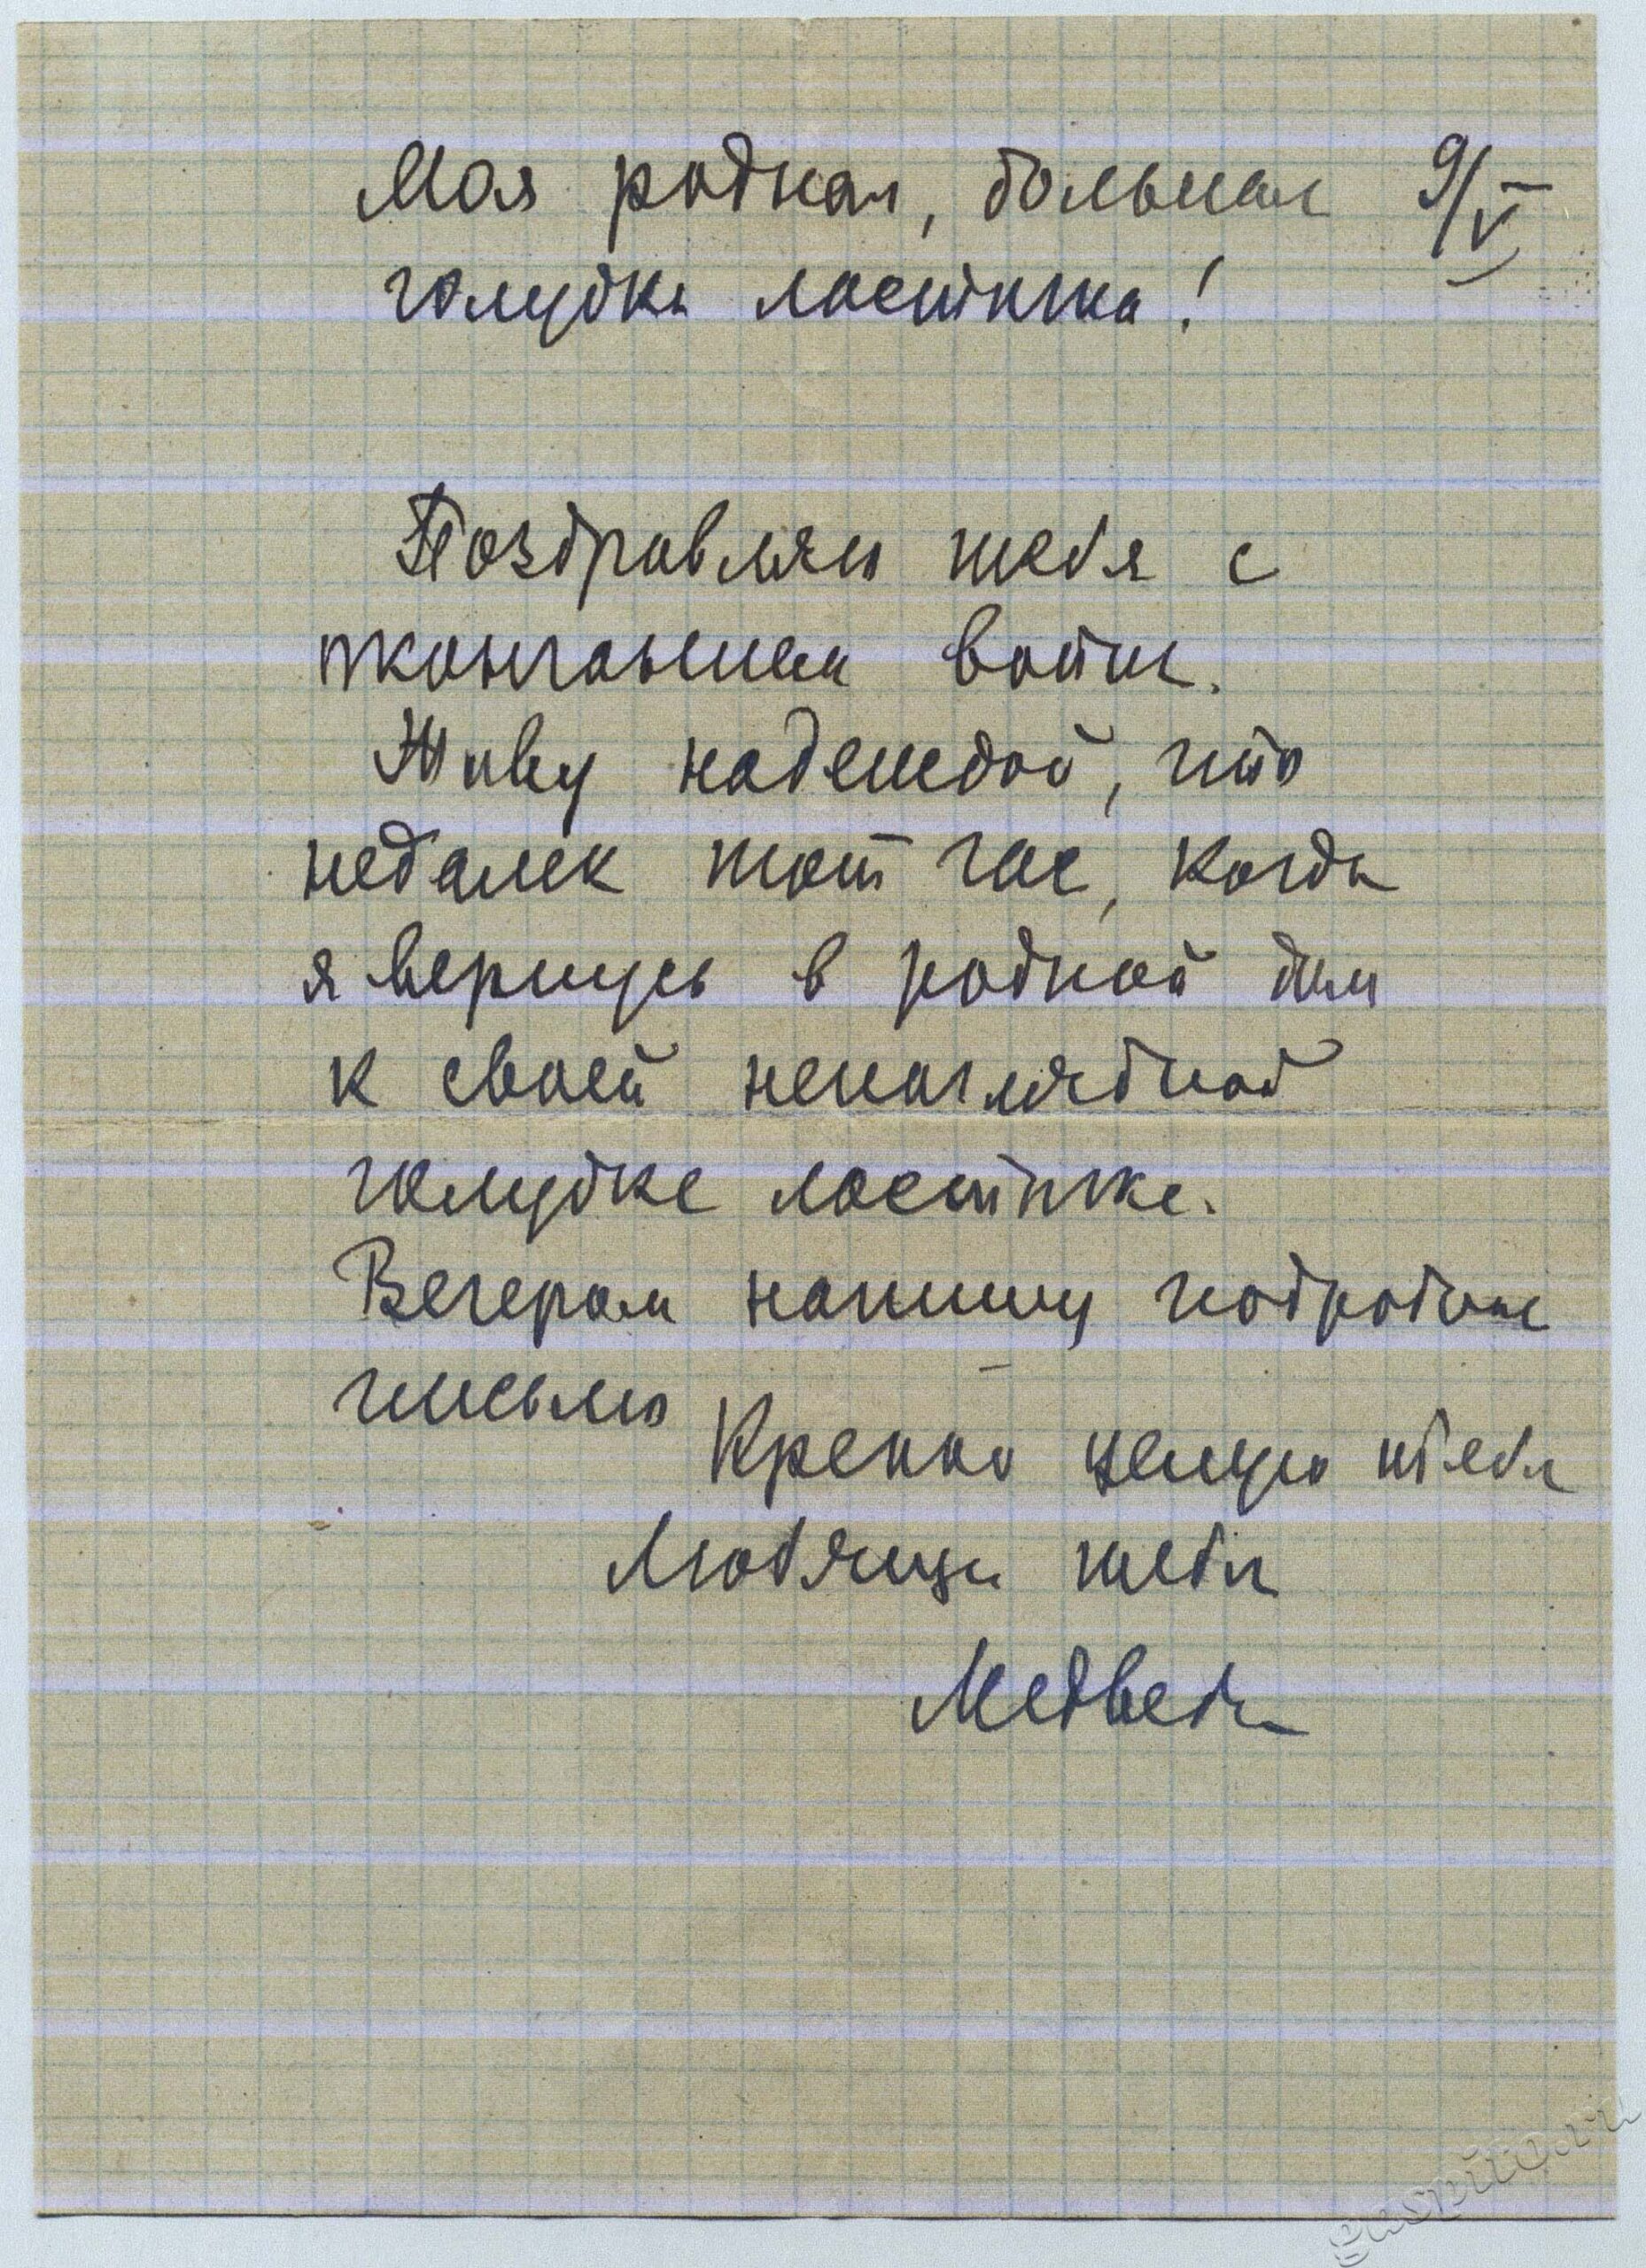 Моя родная, больная 9/V
голубка ласточка!
Поздравляю тебя с
окончанием войны.
Живу надеждой, что
недалек тот час, когда
я вернусь в родной дом
к своей ненаглядной
голубке ласточке.
Вечером напишу подробное
письмо
Крепко целую тебя
Любящий тебя
Медведь
gaspito.ru